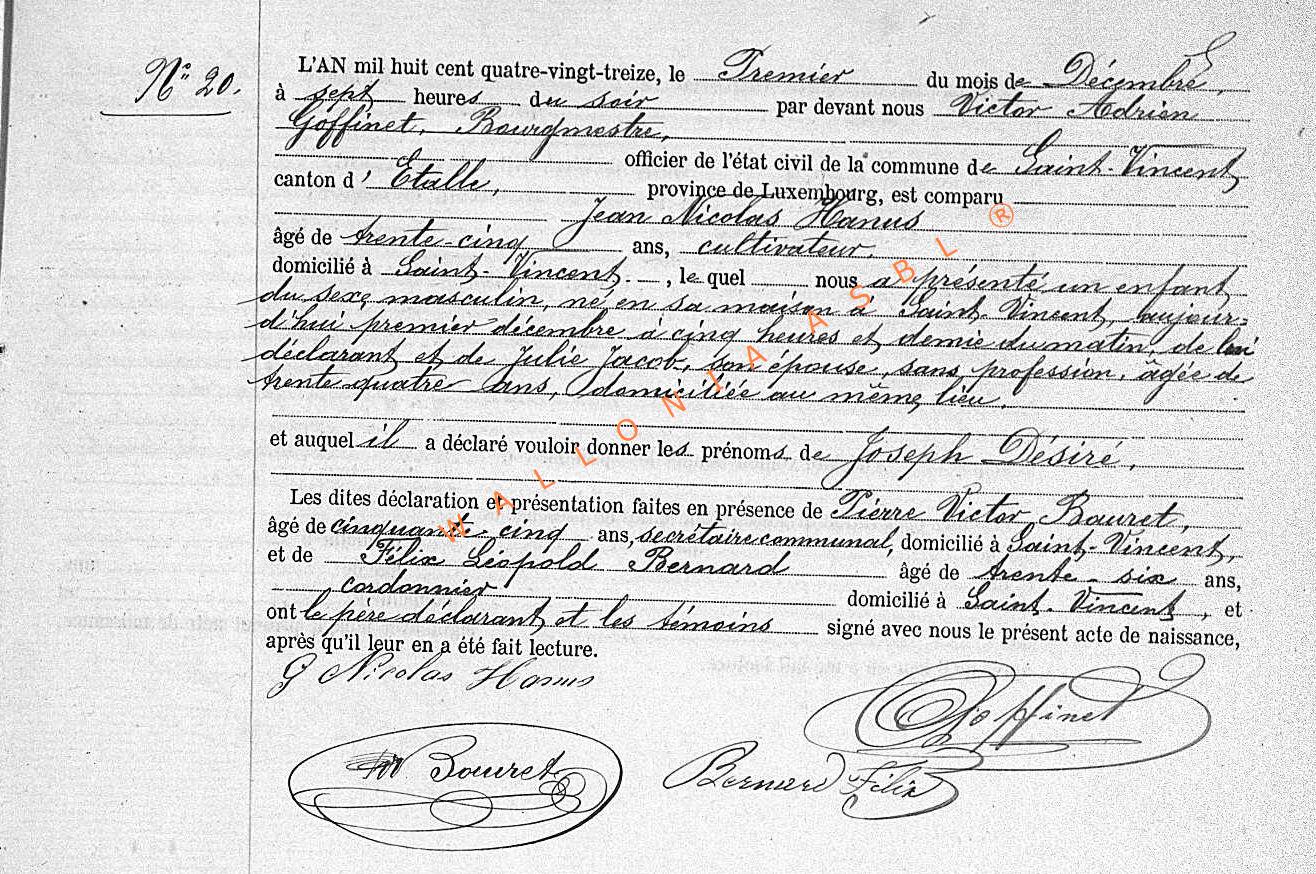 N° 20.
L'AN mil huit cent quatre-vingt-treize, le Premier du mois de Décembre,
à sept heures du soir par devant nous Victor Adrien
Goffinet, Bourgmestre,
officier de l'état civil de la commune de Saint-Vincent
canton d' Etalle, province de Luxembourg, est comparu
Jean Nicolas Hanus
âgé de trente-cinq ans, cultivateur.
domicilié à Saint-Vincent, le quel nous a présenté un enfant
du sexe masculin, né en sa maison à Saint-Vincent, aujour-
d'hui premier décembre à cinq heures et demie du matin, de lui
déclarant et de Julie Jacob, son épouse, sans profession, âgée de
trente quatre ans, domiciliée au même lieu.
et auquel il a déclaré vouloir donner les prénoms de Joseph Désiré.
Les dites déclaration et présentation faites en présence de Pierre Victor Bouret,
âgé de cinquante-cinq ans, secrétaire communal, domicilié à Saint-Vincent,
et de Félix Léopold Bernard âgé de trente-six ans,
cordonnier domicilié à Saint-Vincent, et
ont le père déclarant et les témoins signé avec nous le présent acte de naissance,
après qu'il leur en a été fait lecture.
J Nicolas Hanus
Goffinet
Bouret
Bernard Félix
WALLONIA ASBL ®